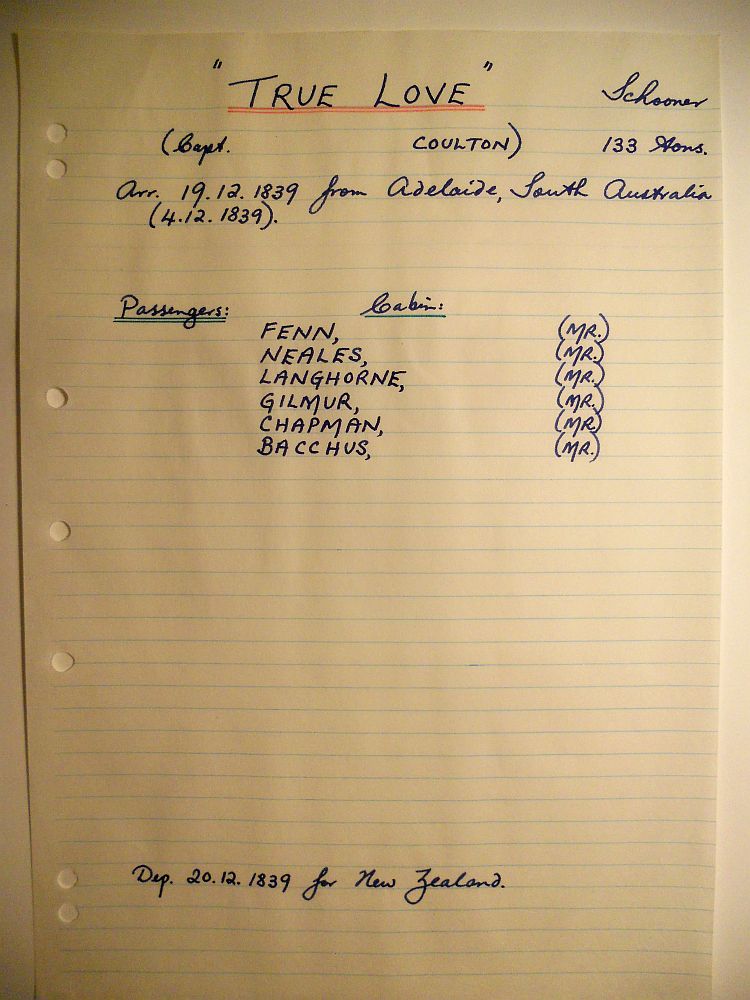 "TRUE LOVE" Schooner
(Capt. COULTON) 133 tons.
Arr. 19.12.1839 from Adelaide, South Australia
(4.12.1839).
Passengers: Cabin:
FENN, (MR.)
NEALES, (MR.)
LANGHORNE, (MR.)
GILMUR, (MR.)
CHAPMAN, (MR)
BACCHUS, (MR.)
Dep. 20.12.1839 for New Zealand.